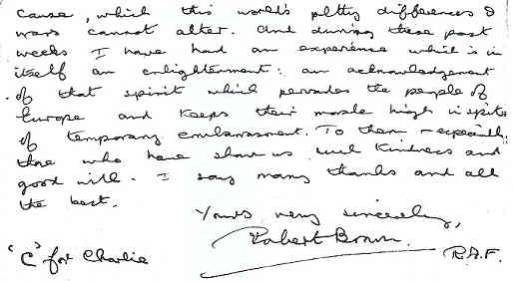 cause, which this world's petty differences &
wars cannot alter. And during these past
weeks I have had an experience which is in
itself an enlightenment: an acknowledgement
of that spirit which pervades the people of
Europe and keeps their morale high in spite
of temporary embarrassment. To them – especially
those who have shown us such kindness and
good will. I say many thanks and all
the best.
Yours very sincerely,
Robert Brown.
"C" for Charlie
R.A.F.